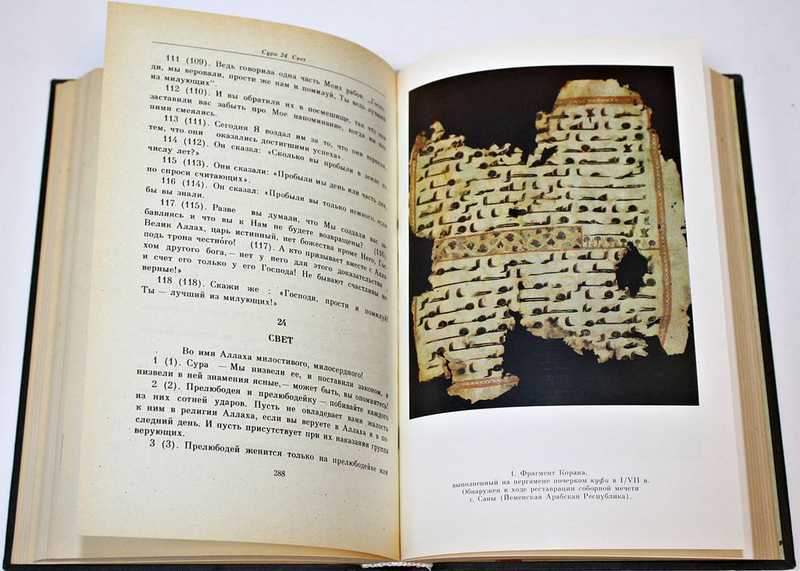 Сура 24. Свет
111 (109). Ведь говорила одна часть Моих рабов „Госпо-
ди, мы веровали, прости же нам и помилуй, Ты ведь лучший
из милующих“.
112 (110). И вы обратили их в посмешище, так что они
заставили вас забыть про Мое напоминание, когда вы над
ними смеялись.
113 (111). Сегодня Я воздал им за то, что они терпели
тем, что они оказались достигшими успеха».
114 (112). Он сказал: «Сколько вы пробыли в земле по
числу лет?»
115 (113). Они сказали: «Пробыли мы день или часть дня,
но спроси считающих».
116 (114). Он сказал: «Пробыли вы только немного, если
бы вы знали.
117 (115). Разве вы думали, что Мы создали вас за-
бавляясь и что вы к Нам не будете возвращены? (116).
Велик Аллах, царь истинный, нет божества кроме Него, Гос-
подь трона честного! (117). А кто призывает вместе с Алла-
хом другого бога,— нет у него для этого доказательства
и счет его только у его Господа! Не бывают счастливы не-
верные!»
118 (118). Скажи же : «Господи, прости и помилуй!
Ты — лучший из милующих!»
24
СВЕТ
Во имя Аллаха милостивого, милосердного!
1 (1). Сура — Мы низвели ее, и поставили законом, и
низвели в ней знамения ясные,— может быть, вы опомнитесь!
2 (2). Прелюбодея и прелюбодейку — побивайте каждого
из них сотней ударов. Пусть не овладевает вами жалость
к ним в религии Аллаха, если вы веруете в Аллаха и в по-
следний день. И пусть присутствует при их наказании группа
верующих.
3 (3). Прелюбодей женится только на прелюбодейке или
288
1. Фрагмент Корана,
выполненный на пергамене почерком куфи в I/VII в.
Обнаружен в ходе реставрации соборной мечети
г. Саны (Йеменская Арабская Республика).